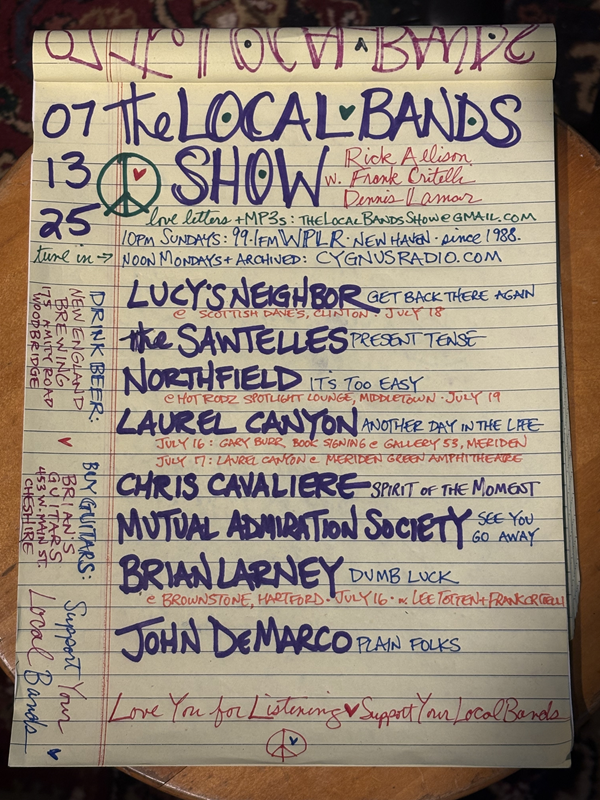 07
13
25
the LOCAL BANDS
SHOW
w. Rick Allison
Frank Critelli
Dennis Lamar
love letters + MP3s: THELOCALBANDSSHOW@GMAIL.COM
10PM SUNDAYS: 99.1FM WPLR · NEW HAVEN · since 1988.
tune in → NOON MONDAYS + ARCHIVED: CYGNUSRADIO.COM
LUCY'S NEIGHBOR GET BACK THERE AGAIN
@ SCOTTISH DAVE'S, CLINTON · JULY 18
the SAWTELLES PRESENT TENSE
NORTHFIELD IT'S TOO EASY
@ HOT RODZ SPOTLIGHT LOUNGE, MIDDLETOWN · JULY 19
LAUREL CANYON ANOTHER DAY IN THE LIFE
JULY 16: GARY BURR BOOK SIGNING @ GALLERY 53, MERIDEN
JULY 17: LAUREL CANYON @ MERIDEN GREEN AMPHITHEATRE
CHRIS CAVALIERE SPIRIT OF THE MOMENT
MUTUAL ADMIRATION SOCIETY SEE YOU
GO AWAY
BRIAN LARNEY DUMB LUCK
@ BROWNSTONE, HARTFORD · JULY 16 · w. LEE TOTTEN + FRANK CRITELLI
JOHN DeMARCO PLAIN FOLKS
Love You for Listening Support Your Local Bands
DRINK BEER:
NEW ENGLAND
BREWING
175 AMITY ROAD
WOODBRIDGE
BUY GUITARS:
BRIAN'S
GUITARS
453 N. MAIN ST.
CHESHIRE
Support Your
Local Bands